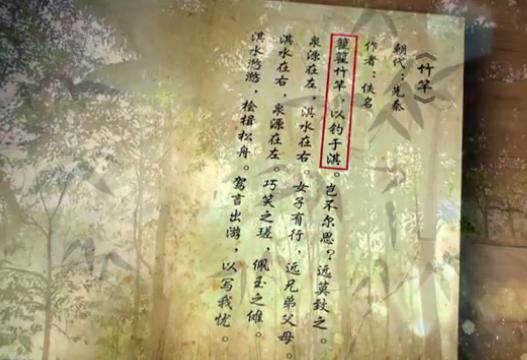 《竹竿》
朝代：先秦
作者：佚名
籊籊竹竿，以钓于淇。岂不尔思？远莫致之。
泉源在左，淇水在右。女子有行，远兄弟父母。
淇水在右，泉源在左。巧笑之瑳，佩玉之傩。
淇水滺滺，桧楫松舟。驾言出游，以写我忧。